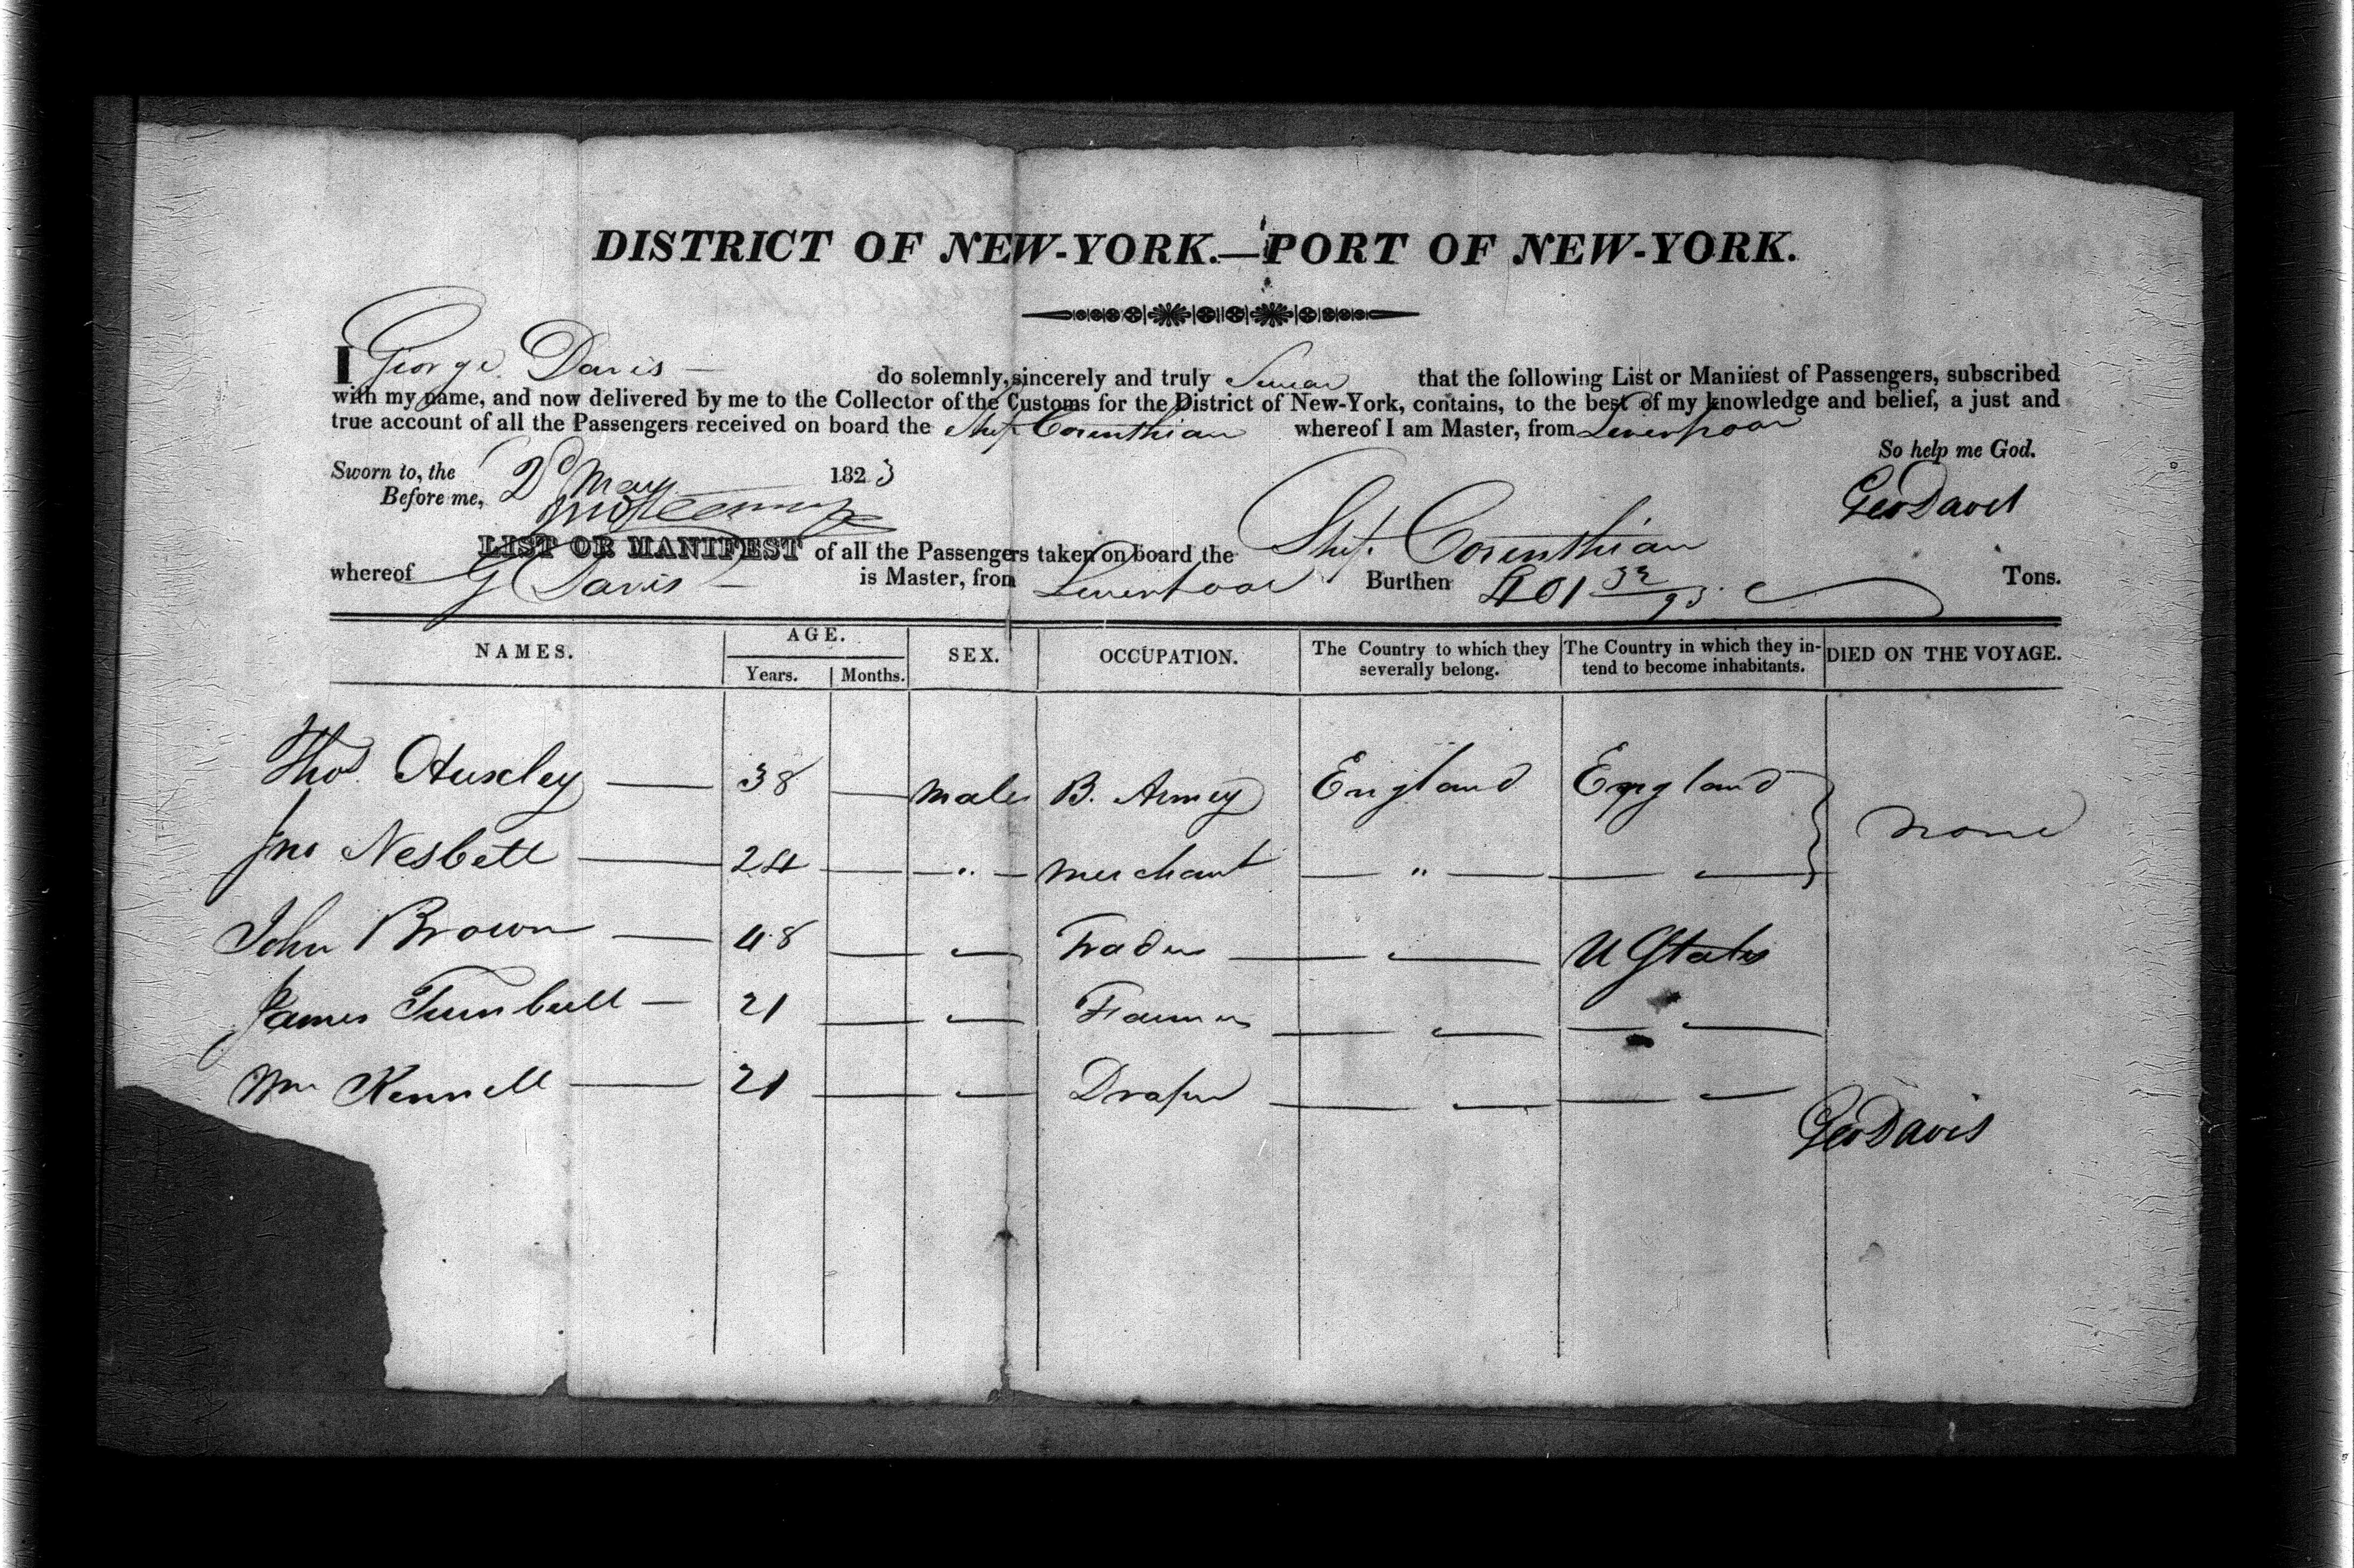 DISTRICT OF NEW-YORK.—PORT OF NEW-YORK.
I George Davis — do solemnly, sincerely and truly Swear that the following List or Manifest of Passengers, subscribed
with my name, and now delivered by me to the Collector of the Customs for the District of New-York, contains, to the best of my knowledge and belief, a just and
true account of all the Passengers received on board the Ship Corinthian whereof I am Master, from Liverpool
So help me God.
Sworn to, the 2d May 1823
Before me,
Geo Davis
LIST OR MANIFEST of all the Passengers taken on board the Ship Corinthian
whereof G Davis — is Master, from Liverpool Burthen 401 32/95 Tons.
NAMES. AGE. SEX. OCCUPATION. The Country to which they severally belong. The Country in which they intend to become inhabitants. DIED ON THE VOYAGE.
Years. Months.
Thos Huxley — 38 — Males B. Army England England
none
Jno Nesbett — 24 — — " — Merchant — " — — —
John Brown — 48 — " Trader — " — U States
James Turnbull — 21 — " Farmer — " — — " —
Wm Kennell — 21 — " Draper — " — — "
Geo Davis